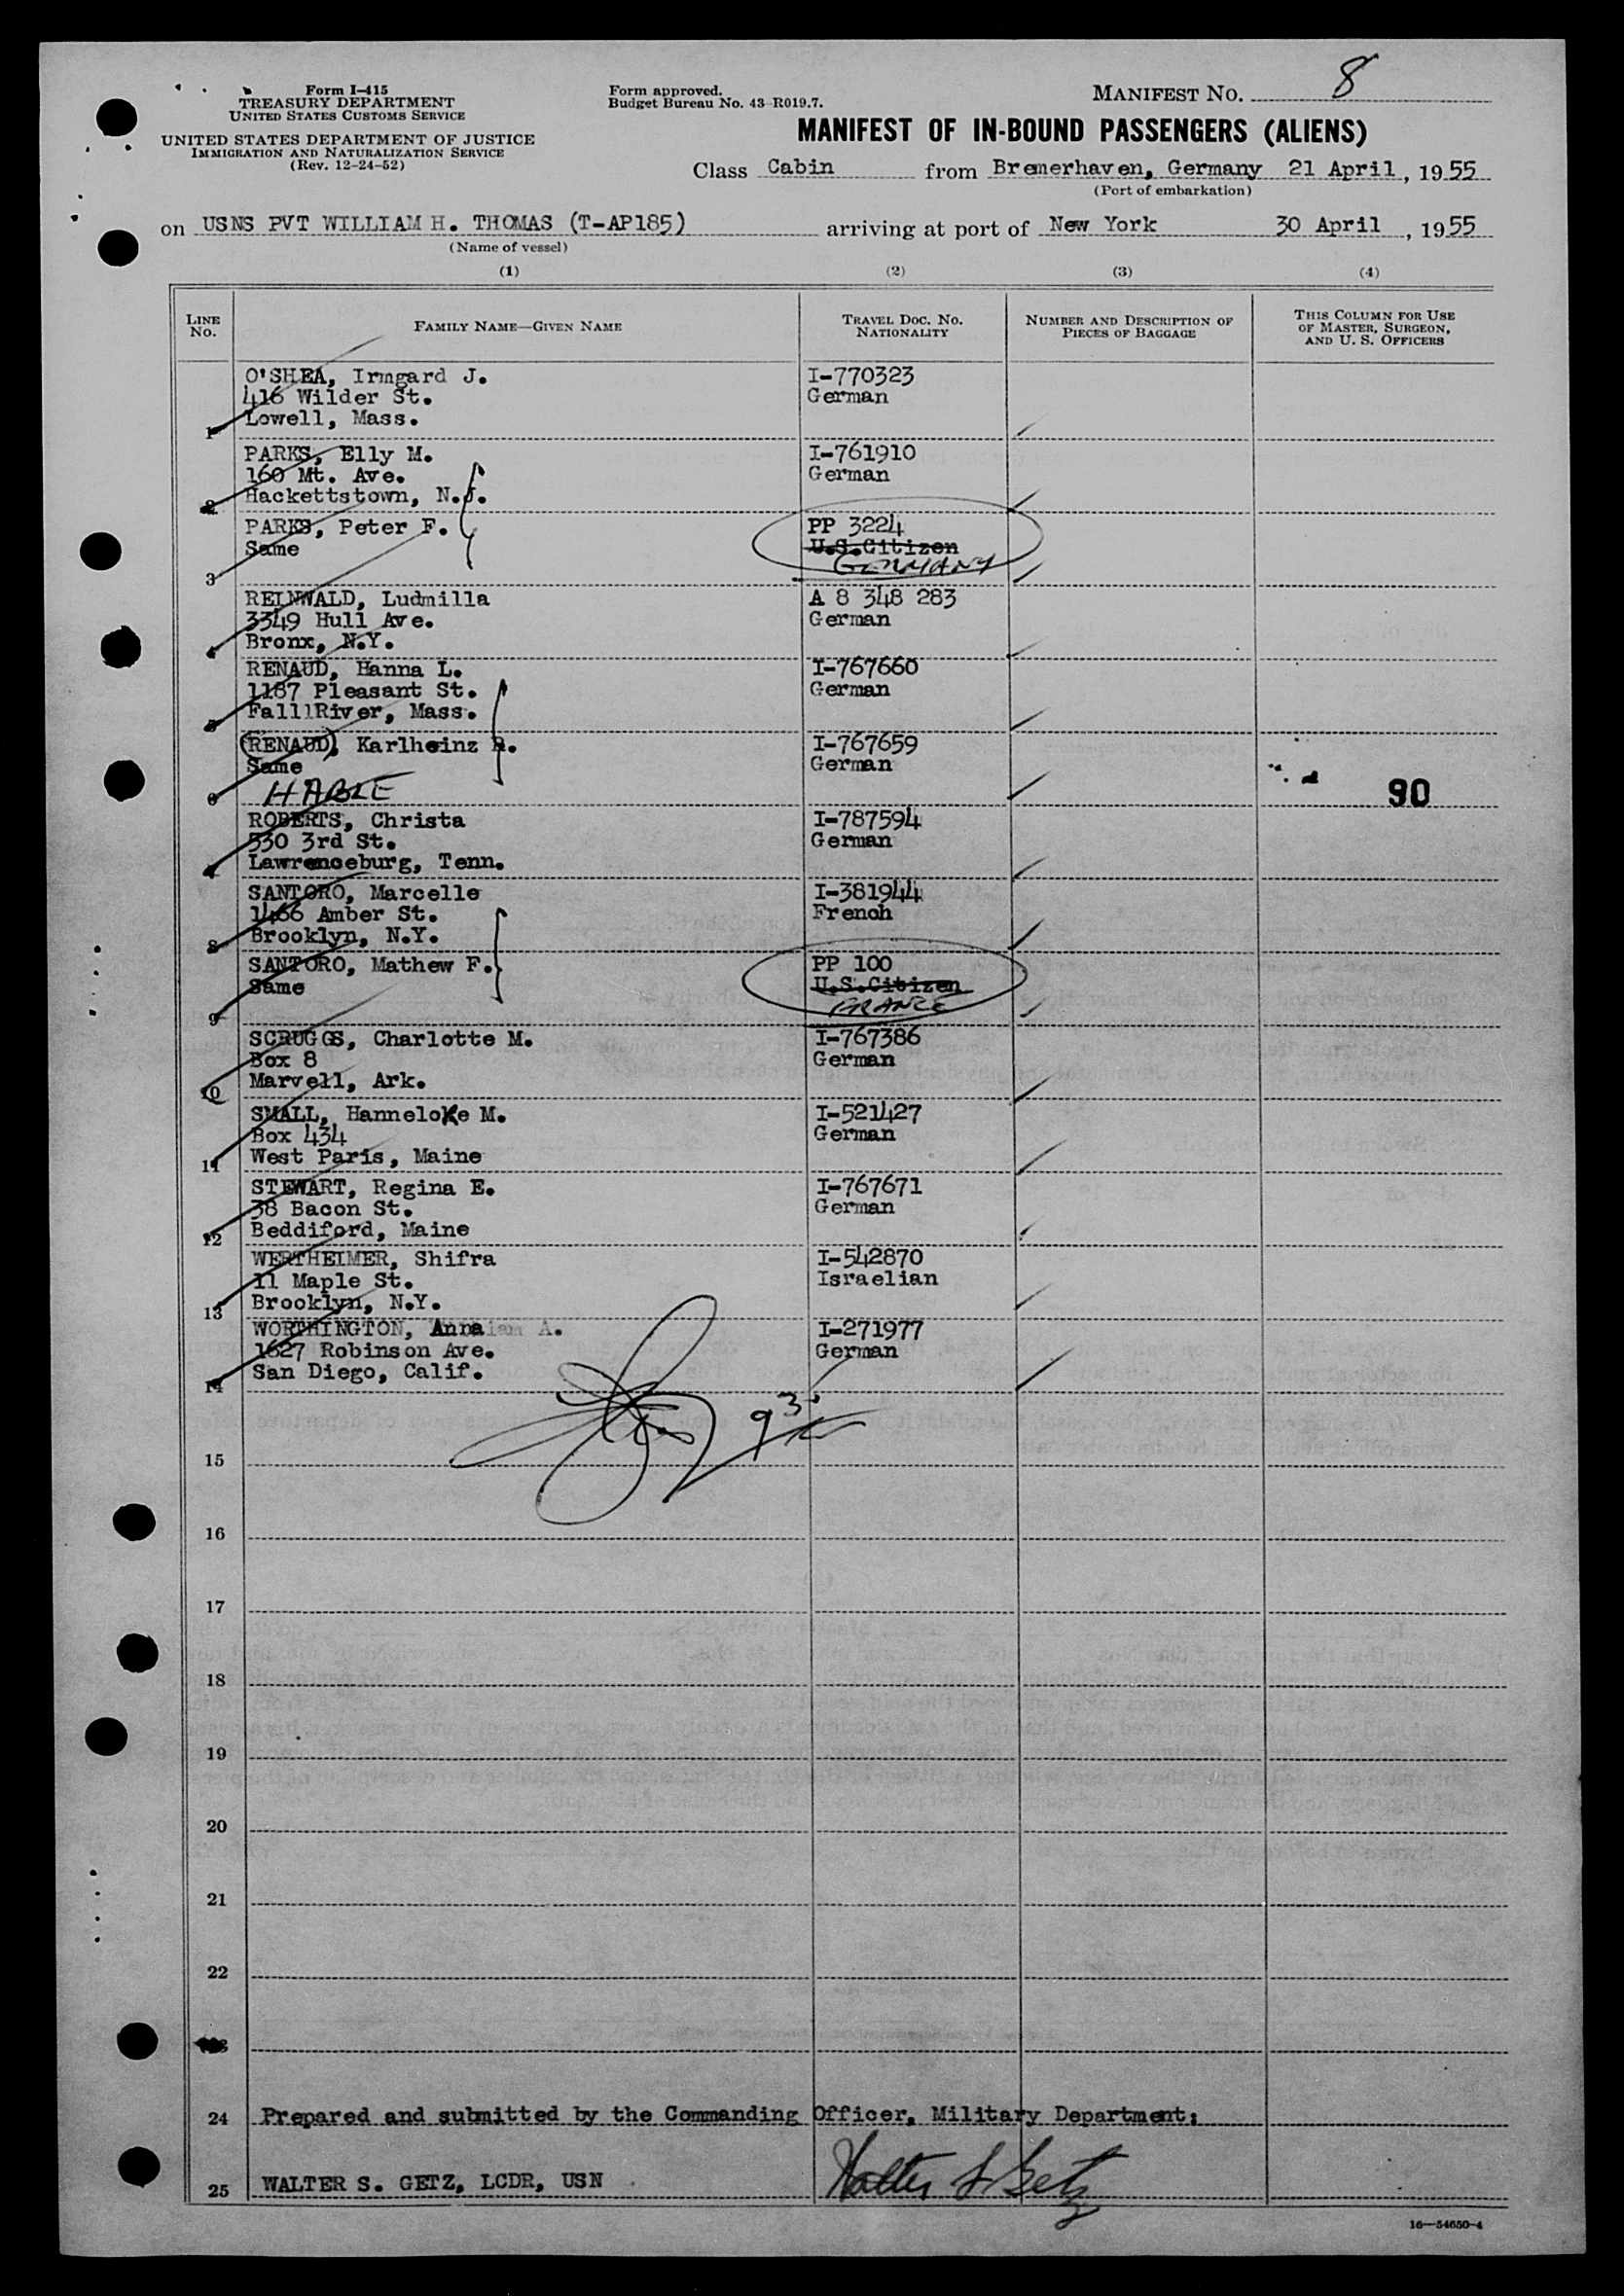 Form I-415
TREASURY DEPARTMENT
UNITED STATES CUSTOMS SERVICE
UNITED STATES DEPARTMENT OF JUSTICE
IMMIGRATION AND NATURALIZATION SERVICE
(Rev. 12-24-52)
Form approved.
Budget Bureau No. 43-R019.7.
MANIFEST NO. 8
MANIFEST OF IN-BOUND PASSENGERS (ALIENS)
Class Cabin from Bremerhaven, Germany 21 April, 1955
(Port of embarkation)
on USNS PVT WILLIAM H. THOMAS (T-AP185) arriving at port of New York 30 April, 1955
(Name of vessel)
(1) (2) (3) (4)
LINE NO. FAMILY NAME—GIVEN NAME TRAVEL DOC. NO. NATIONALITY NUMBER AND DESCRIPTION OF PIECES OF BAGGAGE THIS COLUMN FOR USE OF MASTER, SURGEON, AND U. S. OFFICERS
O'SHEA, Irmgard J. I-770323
416 Wilder St. German
1 Lowell, Mass.
PARKS, Elly M. I-761910
160 Mt. Ave. German
2 Hackettstown, N.J.
PARKS, Peter F. PP 3224
Same U.S.Citizen
3 GERMANY
REINWALD, Ludmilla A 8 348 283
3349 Hull Ave. German
4 Bronx, N.Y.
RENAUD, Hanna L. I-767660
1187 Pleasant St. German
5 FalllRiver, Mass.
(RENAUD), Karlheinz R. I-767659
Same German
6 HABLE 90
ROBERTS, Christa I-787594
530 3rd St. German
7 Lawrenceburg, Tenn.
SANTORO, Marcelle I-381944
1466 Amber St. French
8 Brooklyn, N.Y.
SANTORO, Mathew F. PP 100
Same U.S.Citizen
9 FRANCE
SCRUGGS, Charlotte M. I-767386
Box 8 German
10 Marvell, Ark.
SMALL, Hannelore M. I-521427
Box 434 German
11 West Paris, Maine
STEWART, Regina E. I-767671
38 Bacon St. German
12 Beddiford, Maine
WERTHEIMER, Shifra I-542870
11 Maple St. Israelian
13 Brooklyn, N.Y.
WORTHINGTON, Anna A. I-271977
1627 Robinson Ave. German
14 San Diego, Calif.
15
16
17
18
19
20
21
22
23
24 Prepared and submitted by the Commanding Officer, Military Department:
25 WALTER S. GETZ, LCDR, USN Walter S Getz
16—54650-4